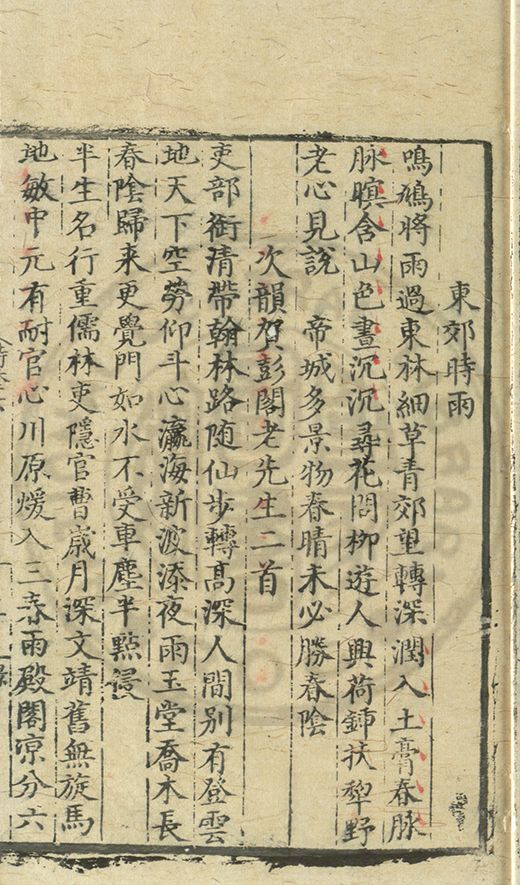 東郊時雨
鳴鳩將雨過東林細草青郊望轉深潤入土膏春脉
脉暝含山色晝沉沉尋花問柳遊人興荷鍤扶犂野
老心見說　帝城多景物春晴未必勝春陰
次韻賀彭閣老先生二首
吏部銜清帶翰林路随仙步轉高深人間别有登雲
地天下空勞仰斗心瀛海新波添夜雨玉堂喬木長
春陰歸来更覺門如水不受車塵半點侵
半生名行重儒林吏隱官曹歲月深文靖舊無旋馬
地敏中元有耐官心川原煖入三春雨殿閣凉分六